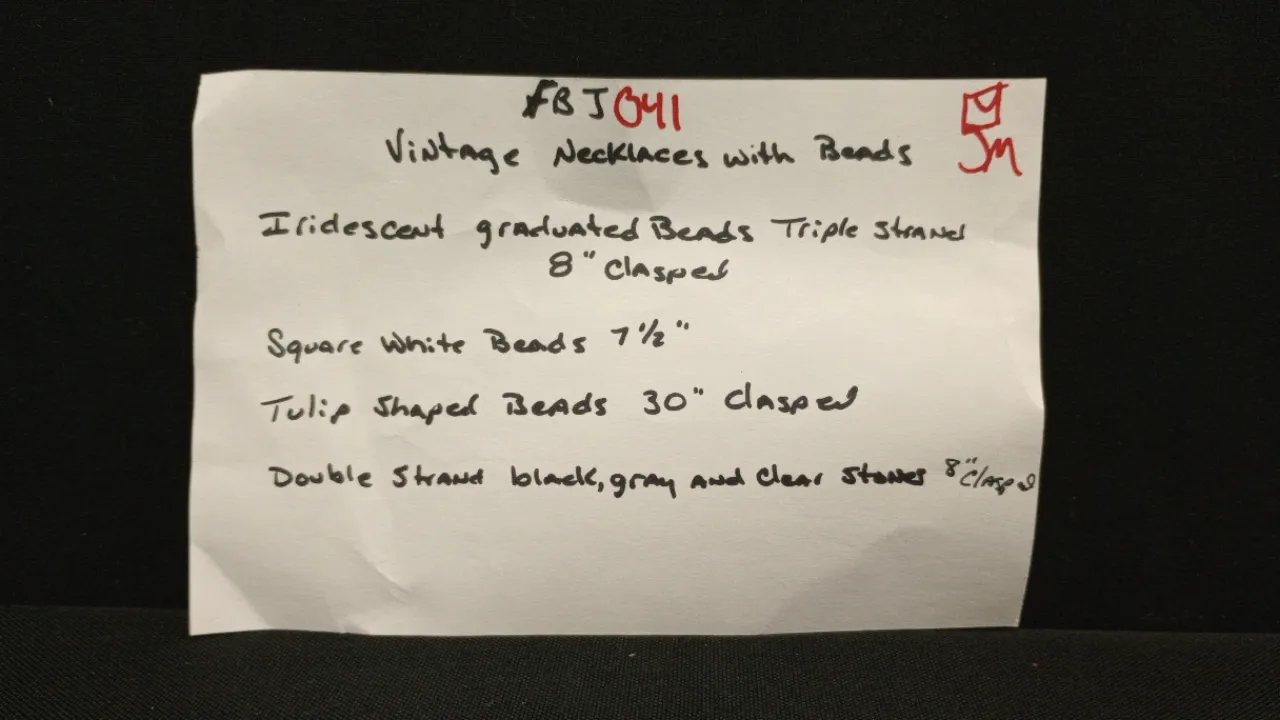 FBJ041
JM
Vintage Necklaces with Beads
Iridescent graduated Beads Triple Strand
8" Clasped
Square White Beads 7 1/2"
Tulip Shaped Beads 30" Clasped
Double Strand black, gray and Clear Stones 8" Clasped